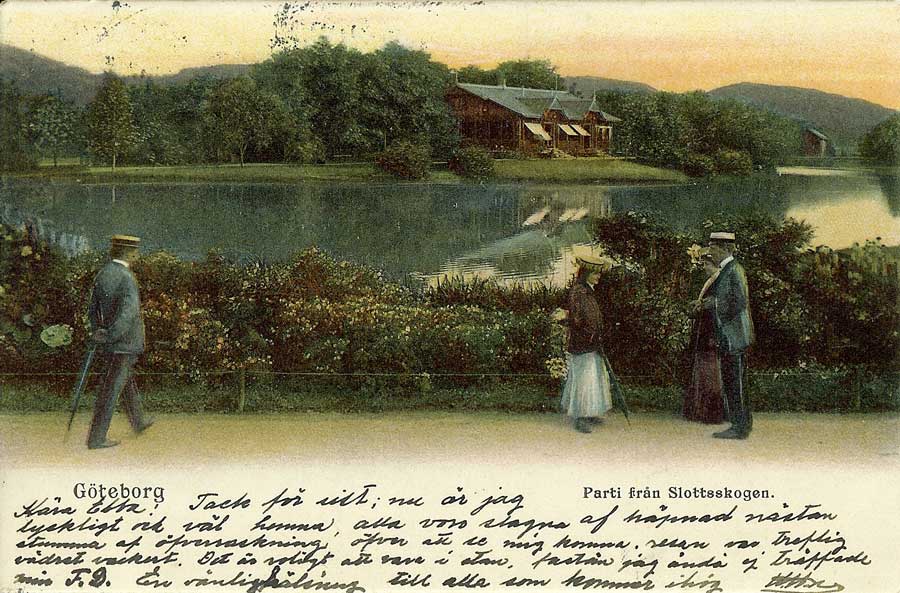 Göteborg
Parti från Slottsskogen.
Kära Ebba! Tack för sist; nu är jag
lyckligt och väl hemma, alla voro slagna af häpnad nästan
stumma af öfverraskning, öfver att se mig komma. resan var treflig
vädret vackert. Det är roligt att vara i stan, fastän jag ändå ej träffade
min F.D. En vänlig hälsning till alla som kommer ihog